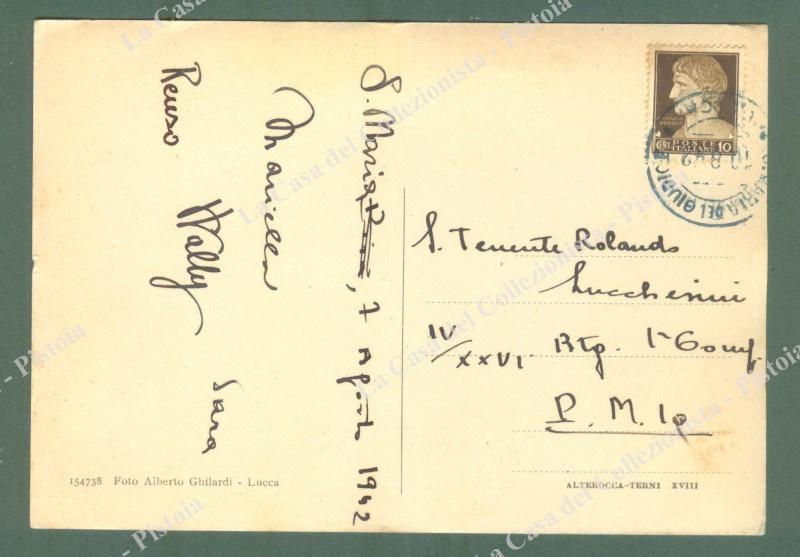 S. Maria, 7 Agosto 1942
Mariella
Renso
Wally
Sara
S. Tenente Rolando
Lucchesini
IV/XXVI Btg. 1ª Comp.
P. M. 10
POSTE
ITALIANE
CENT. 10
10.8.42
S. MARIA DEL GIUDICE
154738 Foto Alberto Ghilardi - Lucca
ALTEROCCA-TERNI XVIII
La Casa del Collezionista - Pistoia